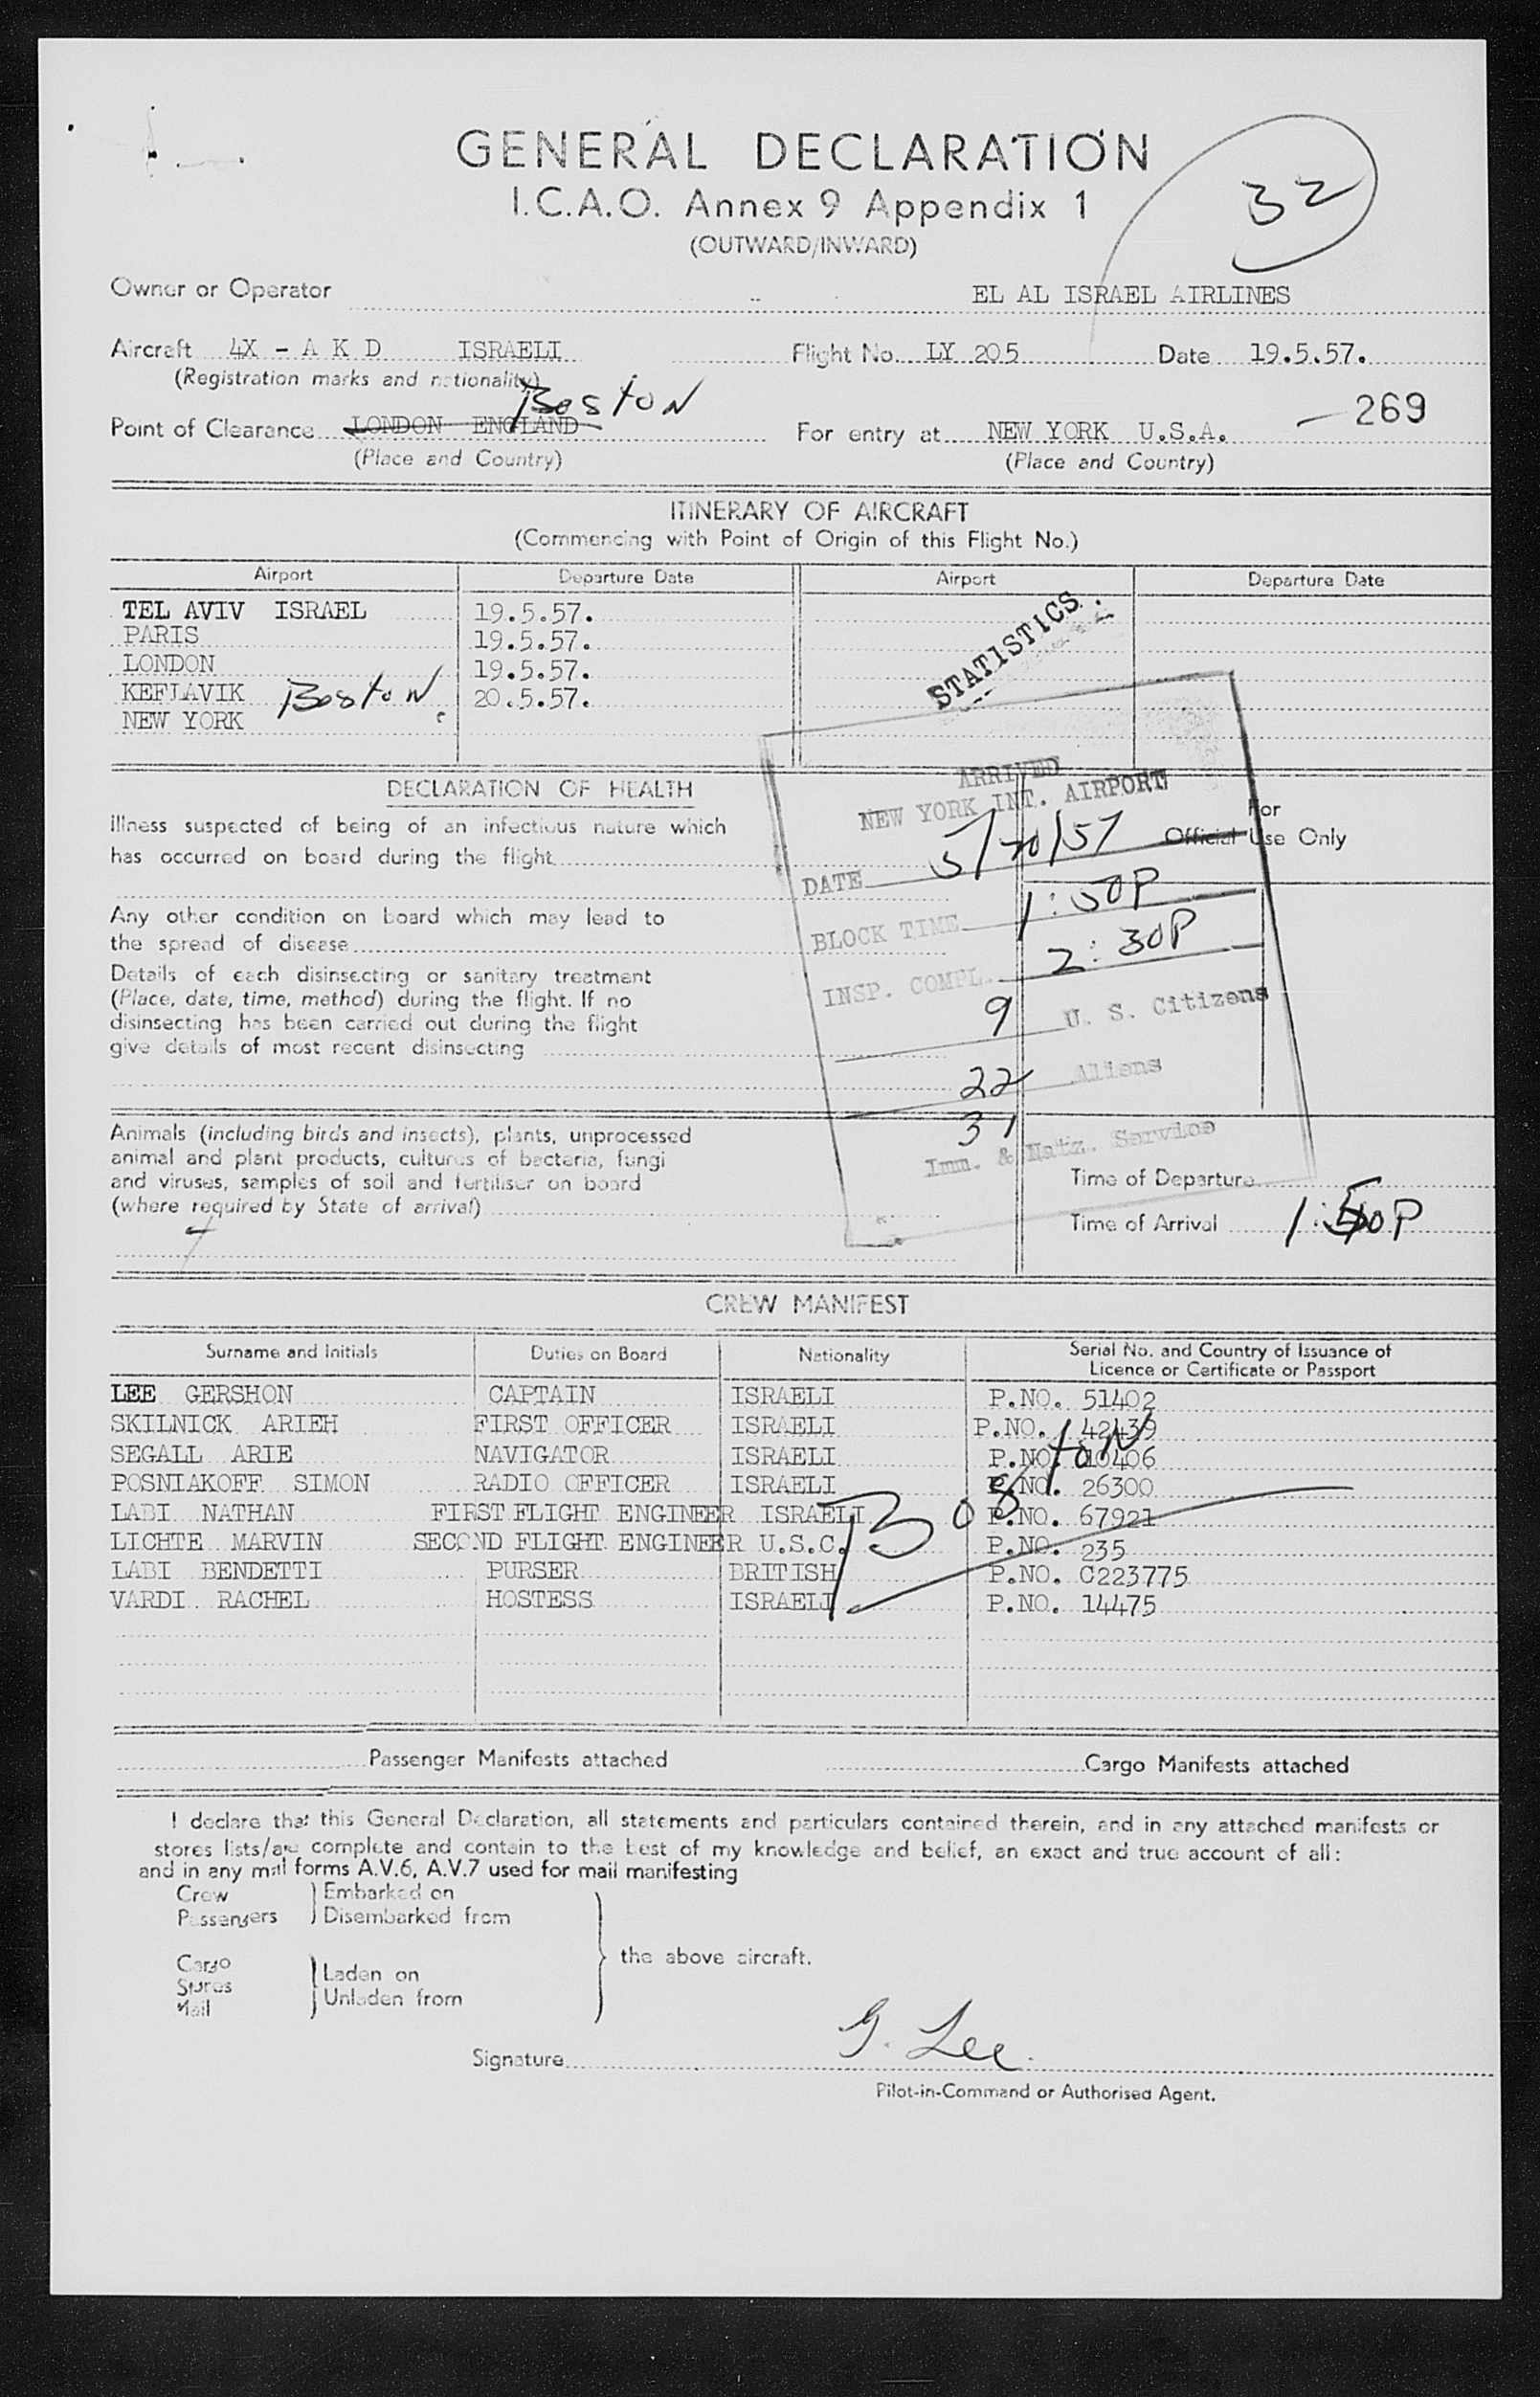 GENERAL DECLARATION
I.C.A.O. Annex 9 Appendix 1
32
(OUTWARD/INWARD)
Owner or Operator EL AL ISRAEL AIRLINES
Aircraft 4X - A K D ISRAELI Flight No. LY 205 Date 19.5.57.
(Registration marks and nationality)
Boston
Point of Clearance LONDON ENGLAND For entry at NEW YORK U.S.A. — 269
(Place and Country) (Place and Country)
ITINERARY OF AIRCRAFT
(Commencing with Point of Origin of this Flight No.)
Airport Departure Date Airport Departure Date
TEL AVIV ISRAEL 19.5.57.
PARIS 19.5.57.
LONDON 19.5.57.
KEFLAVIK Boston 20.5.57.
NEW YORK
STATISTICS.
DECLARATION OF HEALTH
Illness suspected of being of an infectious nature which
has occurred on board during the flight
Any other condition on board which may lead to
the spread of disease
Details of each disinsecting or sanitary treatment
(Place, date, time, method) during the flight. If no
disinsecting has been carried out during the flight
give details of most recent disinsecting
Animals (including birds and insects), plants, unprocessed
animal and plant products, cultures of bacteria, fungi
and viruses, samples of soil and fertiliser on board
(where required by State of arrival)
ARRIVED
NEW YORK INT. AIRPORT
DATE 5/20/57
BLOCK TIME 1:50P
INSP. COMPL. 2:30P
9 U. S. Citizens
22 Aliens
31
Imm. & Natz. Service
For
Official Use Only
Time of Departure
Time of Arrival 1:50P
CREW MANIFEST
Surname and Initials Duties on Board Nationality Serial No. and Country of Issuance of
Licence or Certificate or Passport
LEE GERSHON CAPTAIN ISRAELI P.NO. 51402
SKILNICK ARIEH FIRST OFFICER ISRAELI P.NO. 42439
SEGALL ARIE NAVIGATOR ISRAELI P.NO. 10406
POSNIAKOFF SIMON RADIO OFFICER ISRAELI P.NO. 26300
LABI NATHAN FIRST FLIGHT ENGINEER ISRAELI P.NO. 67921
LICHTE MARVIN SECOND FLIGHT ENGINEER U.S.C. P.NO. 235
LABI BENDETTI PURSER BRITISH P.NO. C223775
VARDI RACHEL HOSTESS ISRAELI P.NO. 14475
Boston
Passenger Manifests attached Cargo Manifests attached
I declare that this General Declaration, all statements and particulars contained therein, and in any attached manifests or
stores lists/are complete and contain to the best of my knowledge and belief, an exact and true account of all:
and in any mail forms A.V.6, A.V.7 used for mail manifesting
Crew Embarked on
Passengers Disembarked from
the above aircraft.
Cargo
Stores Laden on
Mail Unladen from
Signature G. Lee
Pilot-in-Command or Authorised Agent.